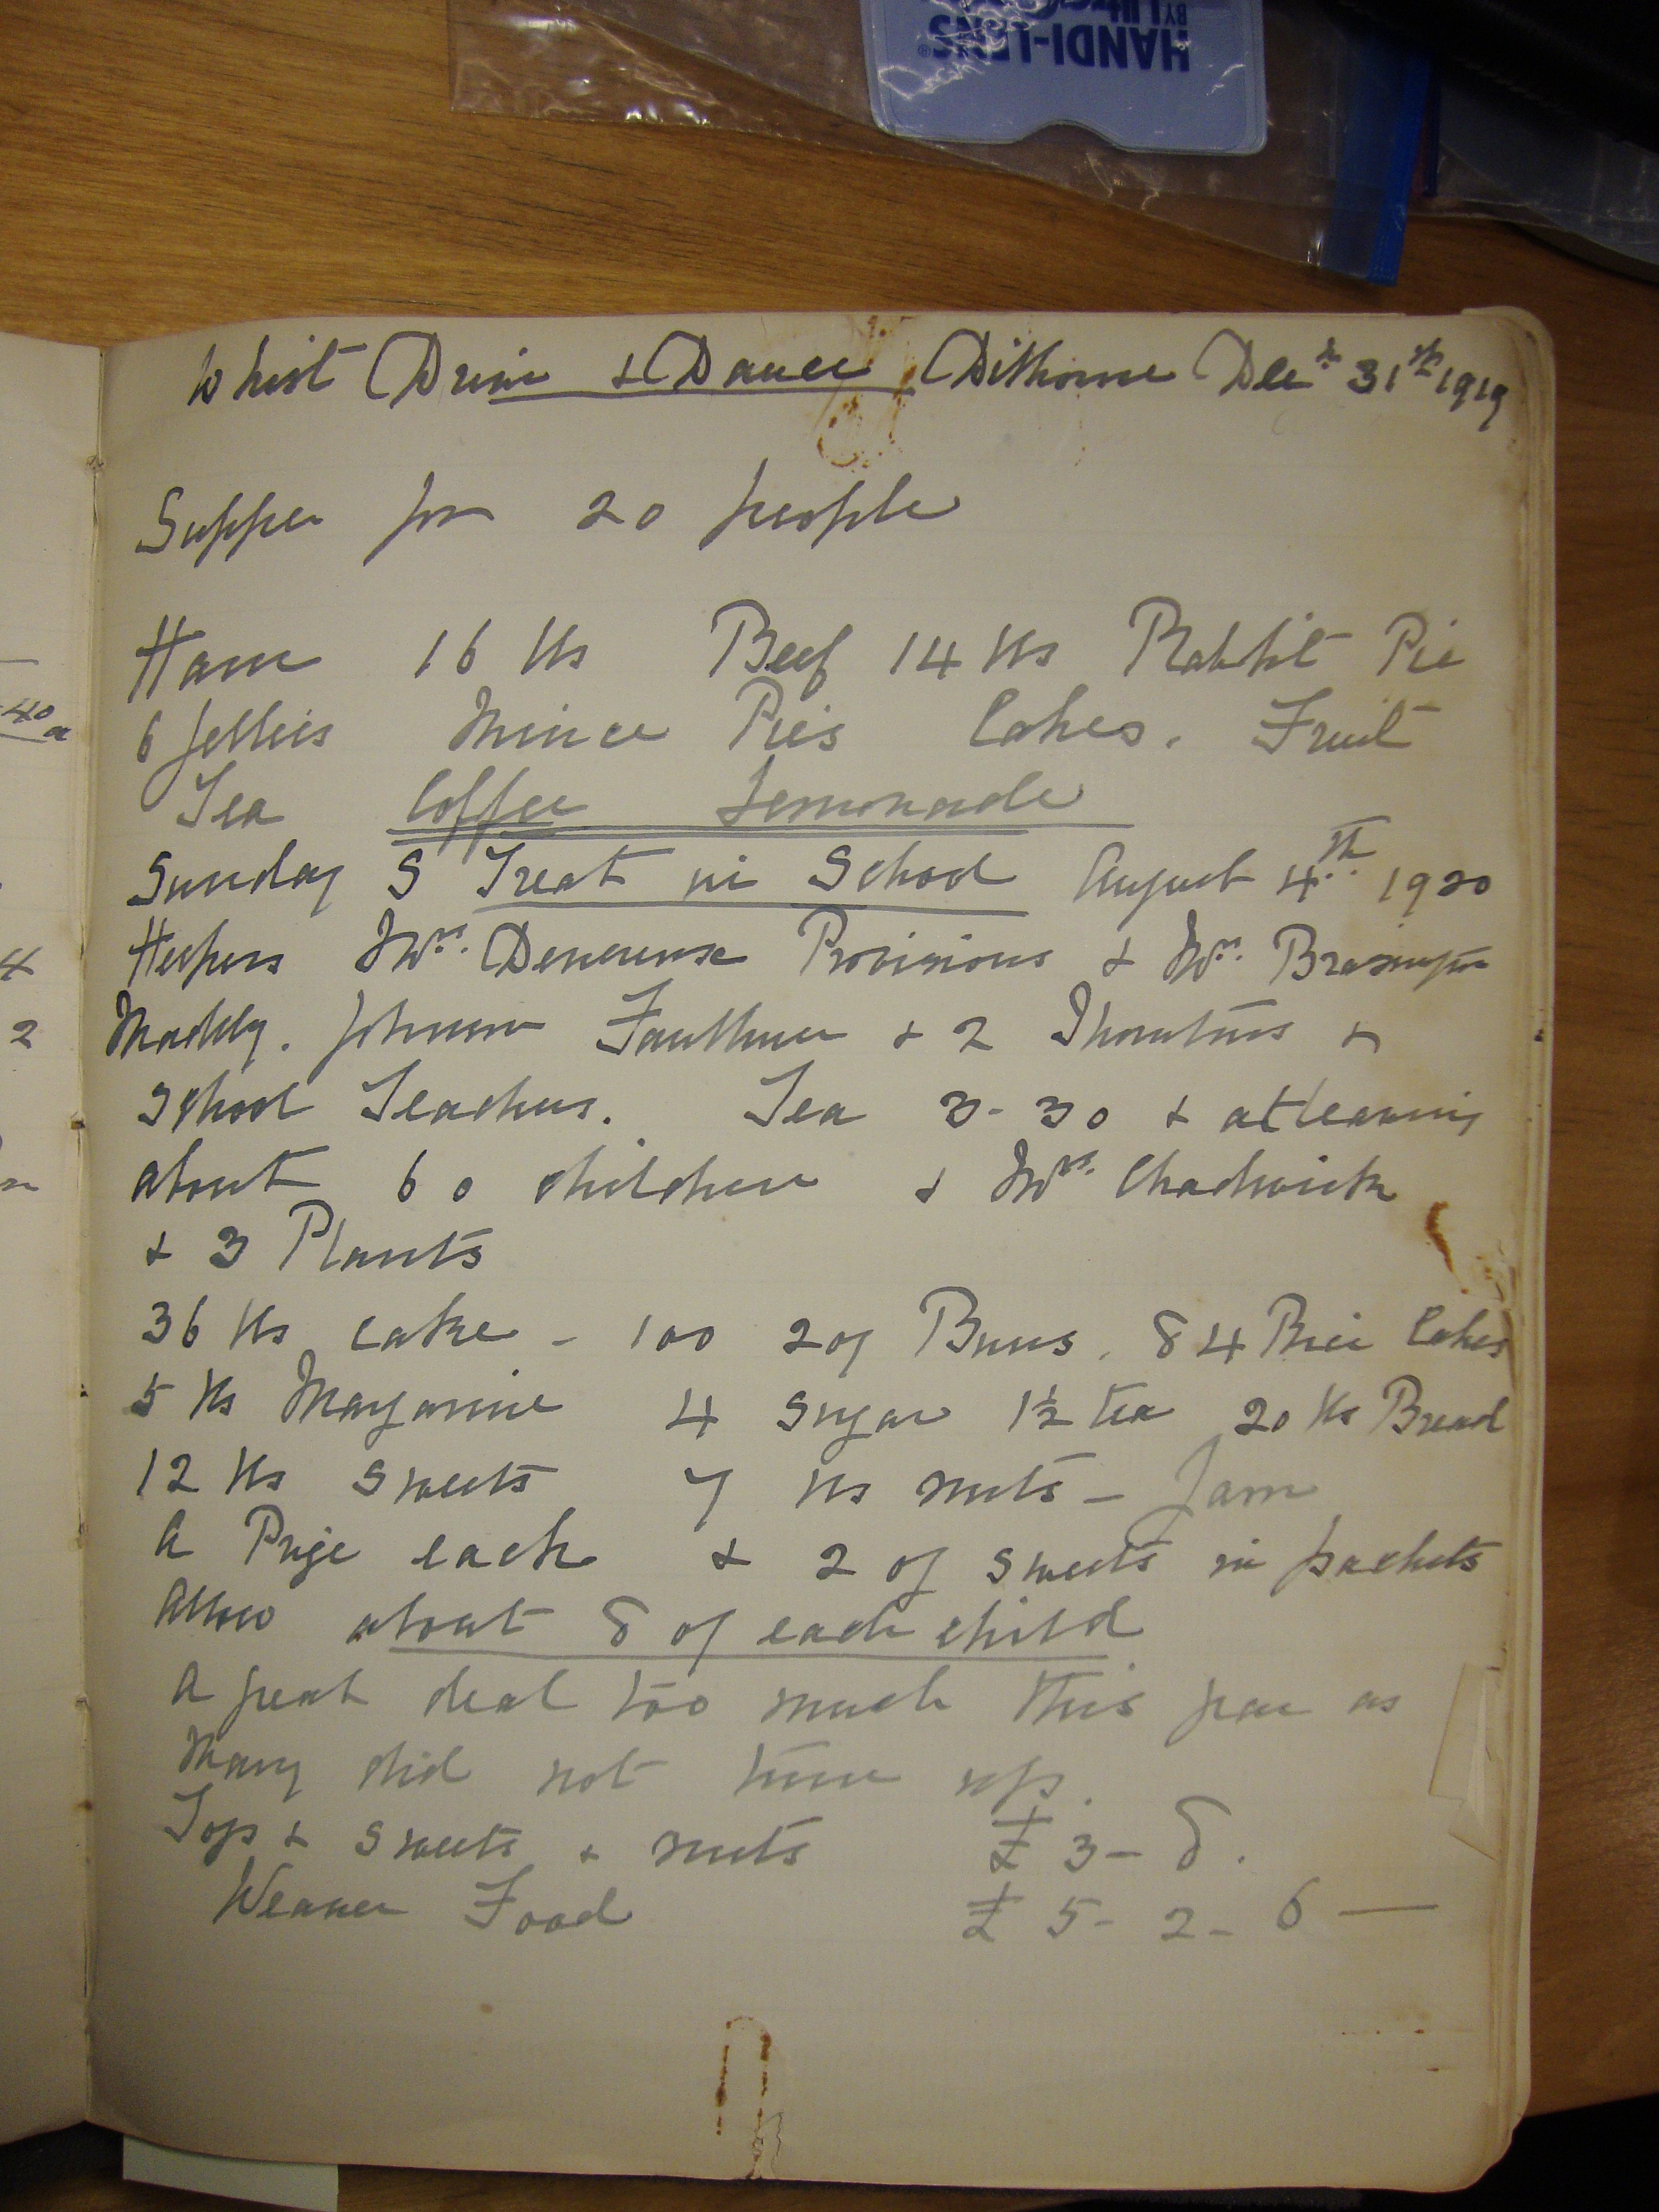 HANDI-LENS®
BY
Whist Drive & Dance Dilhorne Decr 31st 1919
Supper for 20 people
Ham 16 lbs Beef 14 lbs Rabbit Pie
6 Jellies Mince Pies Cakes. Fruit
Tea Coffee Lemonade
Sunday S Treat in School August 4th 1920
Helpers Mrs. Devereuse Provisions & Mrs.
Johnson Faulkner & 2 Thorntons &
School Teachers. Tea 3-30 & at leaving
about 60 children & Mrs. Chadwick
& 3 Plants
36 lbs cake - 100 2oz Buns. 84 Rice Cakes
5 lbs Margarine 4 Sugar 1½ tea 20 lbs Bread
12 lbs sweets 7 lbs nuts - Jam
A Prize each & 2 oz sweets in packets
Allow about 8 oz each child
A great deal too much this year as
Many did not turn up.
Toys & sweets & nuts £3-8.
Weaver Food £5-2-6 —
40
a
4
2